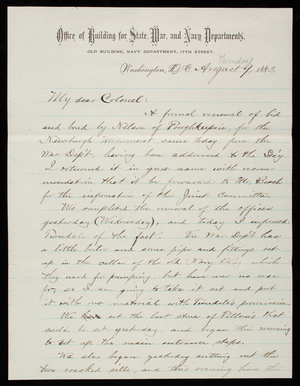 Office of Building for State, War, and Navy Departments,
OLD BUILDING, NAVY DEPARTMENT, 17TH STREET.
Thursday
Washington, D.C. August 9, 1883.
My dear Colonel:
A formal renewal of bid
and bond by Nelson of Poughkeepsie, for the
Newburgh Monument came today from the
War Dept, having been addressed to the Secy.
I returned it in your name with recom-
mendation that it be forwarded to Mr. Beach
for the information of the Joint Committee.
We completed the removal of the offices
yesterday (Wednesday), and today I informed
Tweedale of the fact. The War Dept has a
little boiler and some pipe and fittings set
up in the cellar of the old Navy Bldg, which
they used for pumping, but have now no use
for, so I am going to take it out and put
it with our material with Tweedale's permission.
We set the last stone of
sills yesterday, and began this morning
to set up the main entrance steps.
We also began yesterday cutting out the
two cracked sills, and this morning have the